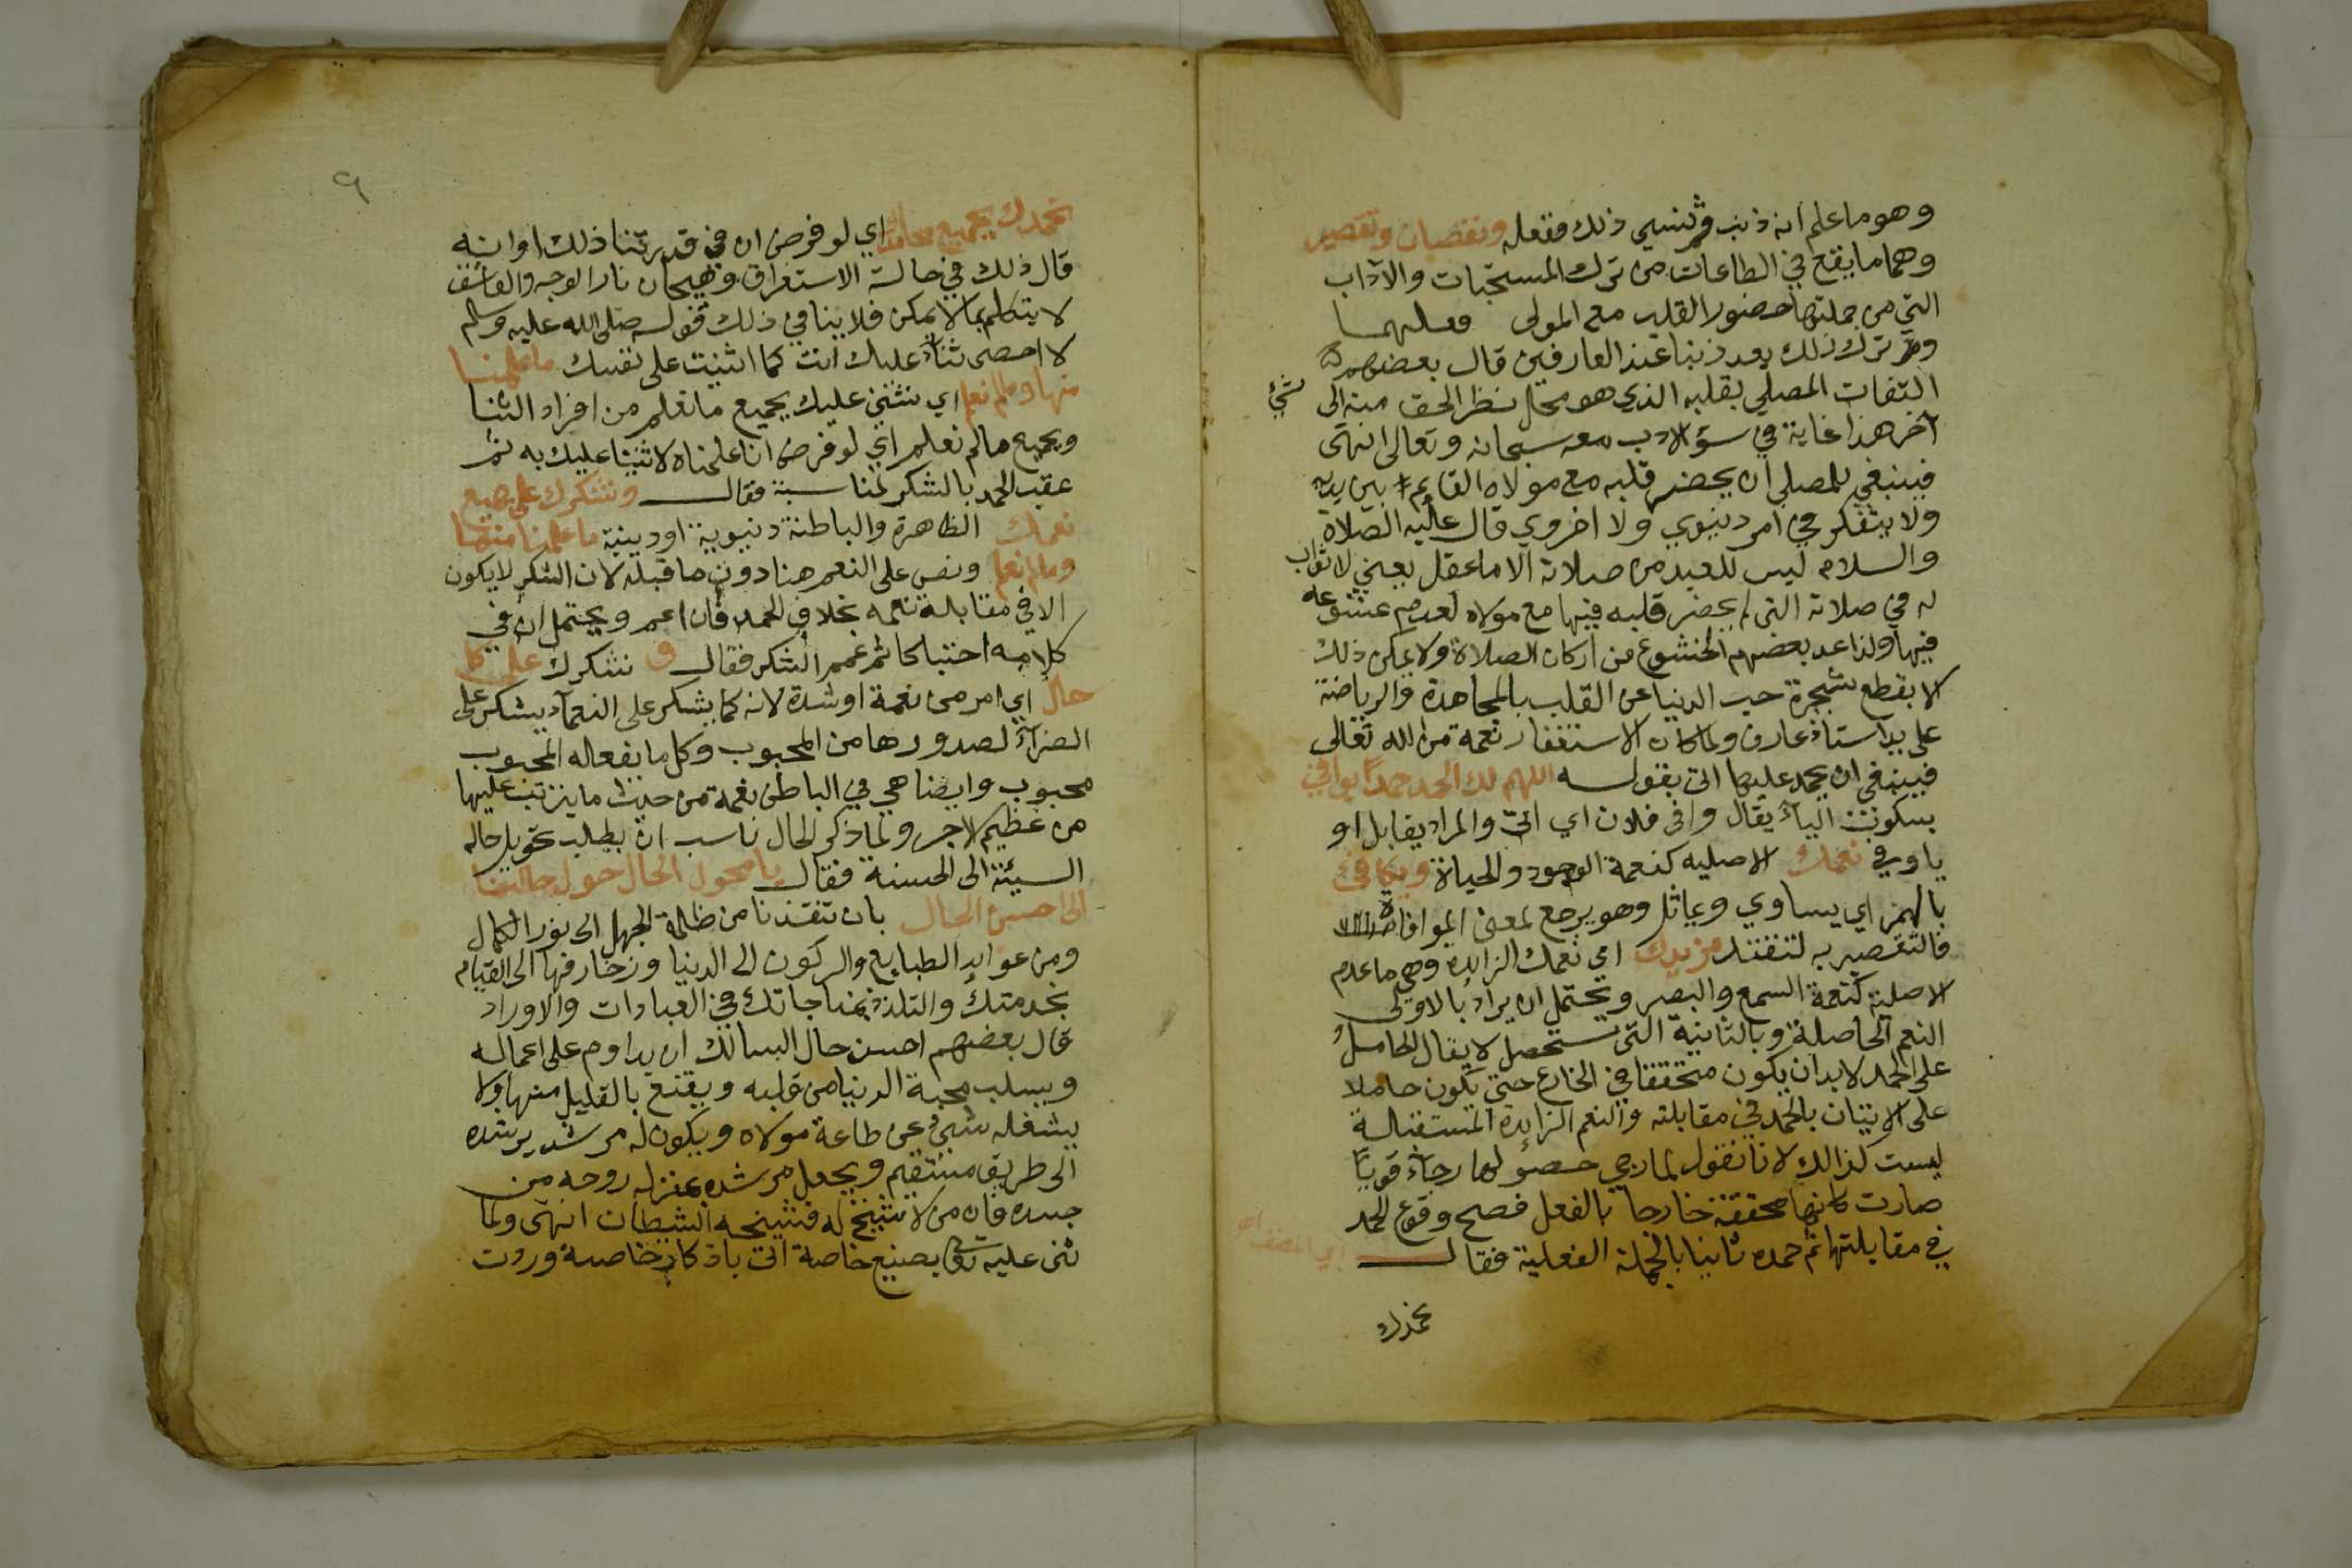 وهو ما علم انه ذنب ثم نسي ذلك ففعله ونقصان وتقصير
وهما ما يقع في الطاعات من ترك المستحبات والآداب
التي من جملتها حضور القلب مع المولى
ترك ذلك يعد ذنبا عند العارفين قال بعضهم
التفات المصلي بقلبه الذي هو محل نظر الحق منه الى شيء
آخر هذا غاية في سؤ الادب معه سبحانه وتعالى انتهى
فينبغي للمصلي ان يحضر قلبه مع مولاه القايم بين يديه
ولا يتفكر في امر دنيوي ولا اخروي قال عليه الصلاة
والسلام ليس للعبد من صلاته الا ما عقل يعني لا ثواب
له في صلاته التي لم يحضر قلبه فيها مع مولاه لعدم خشوعه
فيها ولذا عد بعضهم الخشوع من اركان الصلاة ولا يمكن ذلك
الا بقطع شجرة حب الدنيا عن القلب بالمجاهدة والرياضة
على يد استاذ عارف ولما كان الاستغفار نعمة من الله تعالى
فينبغي ان يحمد عليها اتى بقوله اللهم لك الحمد حمدًا يوافي
بسكون الياء يقال وافى فلان اي اتى والمراد يقابل او
ياوفي نعمك الاصليه كنعمة الوجود والحياة ويكافئ
بالهمز اي يساوي ويماثل وهو يرجع لمعنى الموافاة
فالتعصير به لتفنن مزيدك اي نعمك الزايدة وهي ما عدم
الاصلية كنعمة السمع والبصر ويحتمل ان يراد بالاولى
النعم الحاصلة وبالثانية التي ستحصل لا يقال الحامل
على الحمد لا بد ان يكون متحققا في الخارج حتى يكون حاملا
على الاتيان بالحمد في مقابلته والنعم الزايدة المستقبالة
ليست كذالك لانا نقول لما رجي حصولها رجاءً قويًا
صارت كانها محققة خارجا بالفعل فصح وقوع الحمد
في مقابلتها ثم حمده ثانيا بالجملة الفعلية فقال اي المصنف اه
نحمدك
٩
نحمدك بجميع محامدك اي لو فرض ان في قدرتنا ذلك او انه
قال ذلك في حالة الاستغراق وهيجان نار الوجد والعاشق
لا يتكلم بما لا يمكن فلا ينافي ذلك قوله صلى الله عليه وسلم
لا احصى ثناءً عليك انت كما اثنيت على نفسك ما علمنا
منها وما لم نعلم اي نثني عليك بجميع ما نعلم من افراد الثنا
وبجميع ما لم نعلم اي لو فرض انا علمناه لاثنينا عليك به ثم
عقب الحمد بالشكر لمناسبة فقال ونشكرك على جميع
نعمك الظاهرة والباطنة دنيوية او دينية ما علمنا منها
وما لم نعلم ونص على النعم هنا دون ما قبله لان الشكر لا يكون
الا في مقابلة نعمه بخلاف الحمد فان اعم ويحتمل ان في
كلامه احتباكا ثم عمم الشكر فقال و نشكرك على كل
حال اي امر من نعمة او شدة لانه كما يشكر على النعمآء يشكر على
الضرآء لصدورها من المحبوب وكل ما يفعاله المحبوب
محبوب وايضا هي في الباطن نعمة من حيث ما يترتب عليها
من عظيم الاجر ولما ذكر الحال ناسب ان يطلب تحويل حاله
السيئة الى الحسنة فقال يا محول الحال حول حالنا
الى احسن الحال بان تنقذنا من ظلمة الجهل الى نور الكمال
ومن عوايد الطبايع والركون الى الدنيا وزخارفها الى القيام
بخدمتك والتلذذ بمناجاتك في العبادات والاوراد
قال بعضهم احسن حال السالك ان يداوم على اعماله
ويسلب محبة الدنيا من قلبه ويقنع بالقليل منها ولا
يشغله شيء عن طاعة مولاه ويكون له مرشد يرشده
الى طريق مستقيم ويجعل مرشده بمنزله روحه من
جسده فان من لا شيخ له فشيخه الشيطان انتهى ولما
ثنى عليه بصيغ خاصة اتى باذكار خاصة وردت